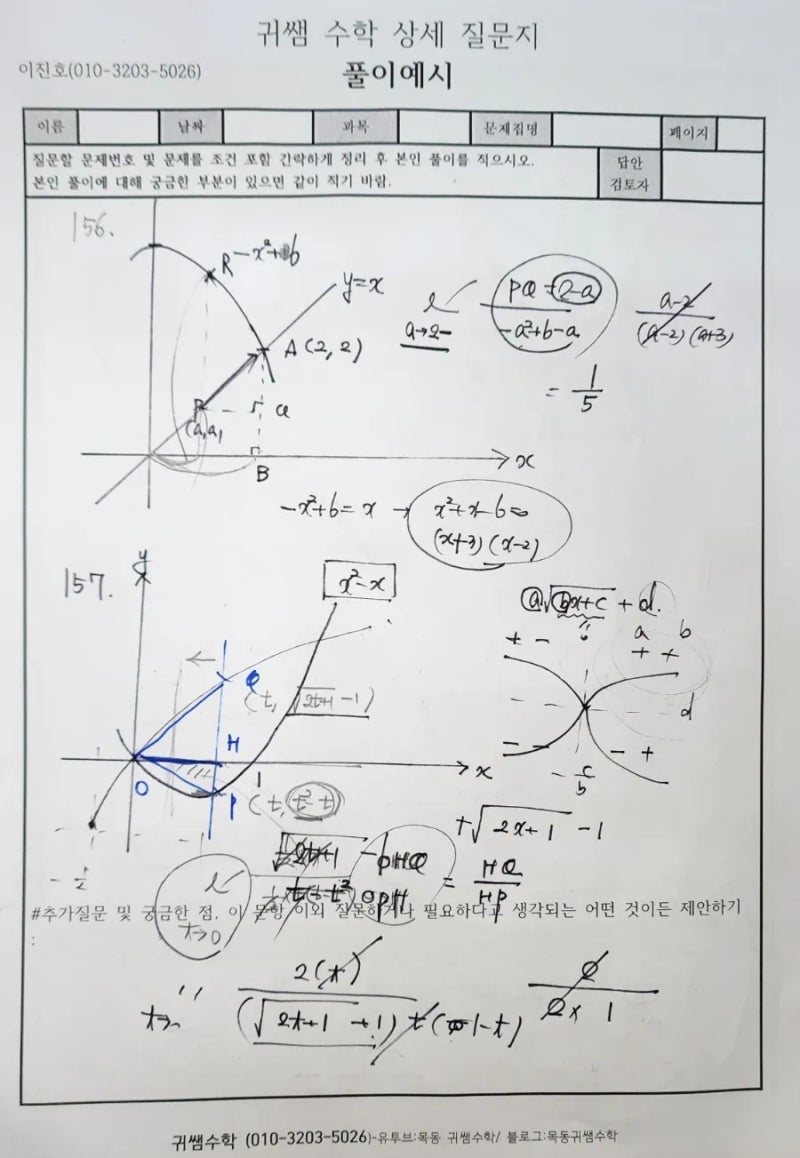 귀쌤 수학 상세 질문지
이진호(010-3203-5026)
풀이예시
이름 날짜 과목 문제집명 페이지
질문할 문제번호 및 문제를 조건 포함 간략하게 정리 후 본인 풀이를 적으시오.
본인 풀이에 대해 궁금한 부분이 있으면 같이 적기 바람.
답안
검토자
156.
R -x²+6
y=x
A(2, 2)
P
Q
(a, a)
B
x
l
a→2-
PQ = 2-a
-a²+b-a
a-2
(a-2)(a+3)
= 1/5
-x²+6=x → x²+x-6=0
(x+3)(x-2)
157.
y
x²-x
a√bx+c + d.
a b
+ -
+ +
d
- -
- +
-c/b
Q
(t, √2t+1 -1)
H
O
1
x
P (t, t²-t)
-1/2
+√2x+1 -1
l
t→0
PHQ
OPH
= HQ/HP
#추가질문 및 궁금한 점, 이 문항 이외 질문하거나 필요하다고 생각되는 어떤 것이든 제안하기
:
2(t)
(√2t+1 +1) t(1-t)
2
2×1
귀쌤수학 (010-3203-5026)-유투브:목동 귀쌤수학/ 블로그:목동귀쌤수학